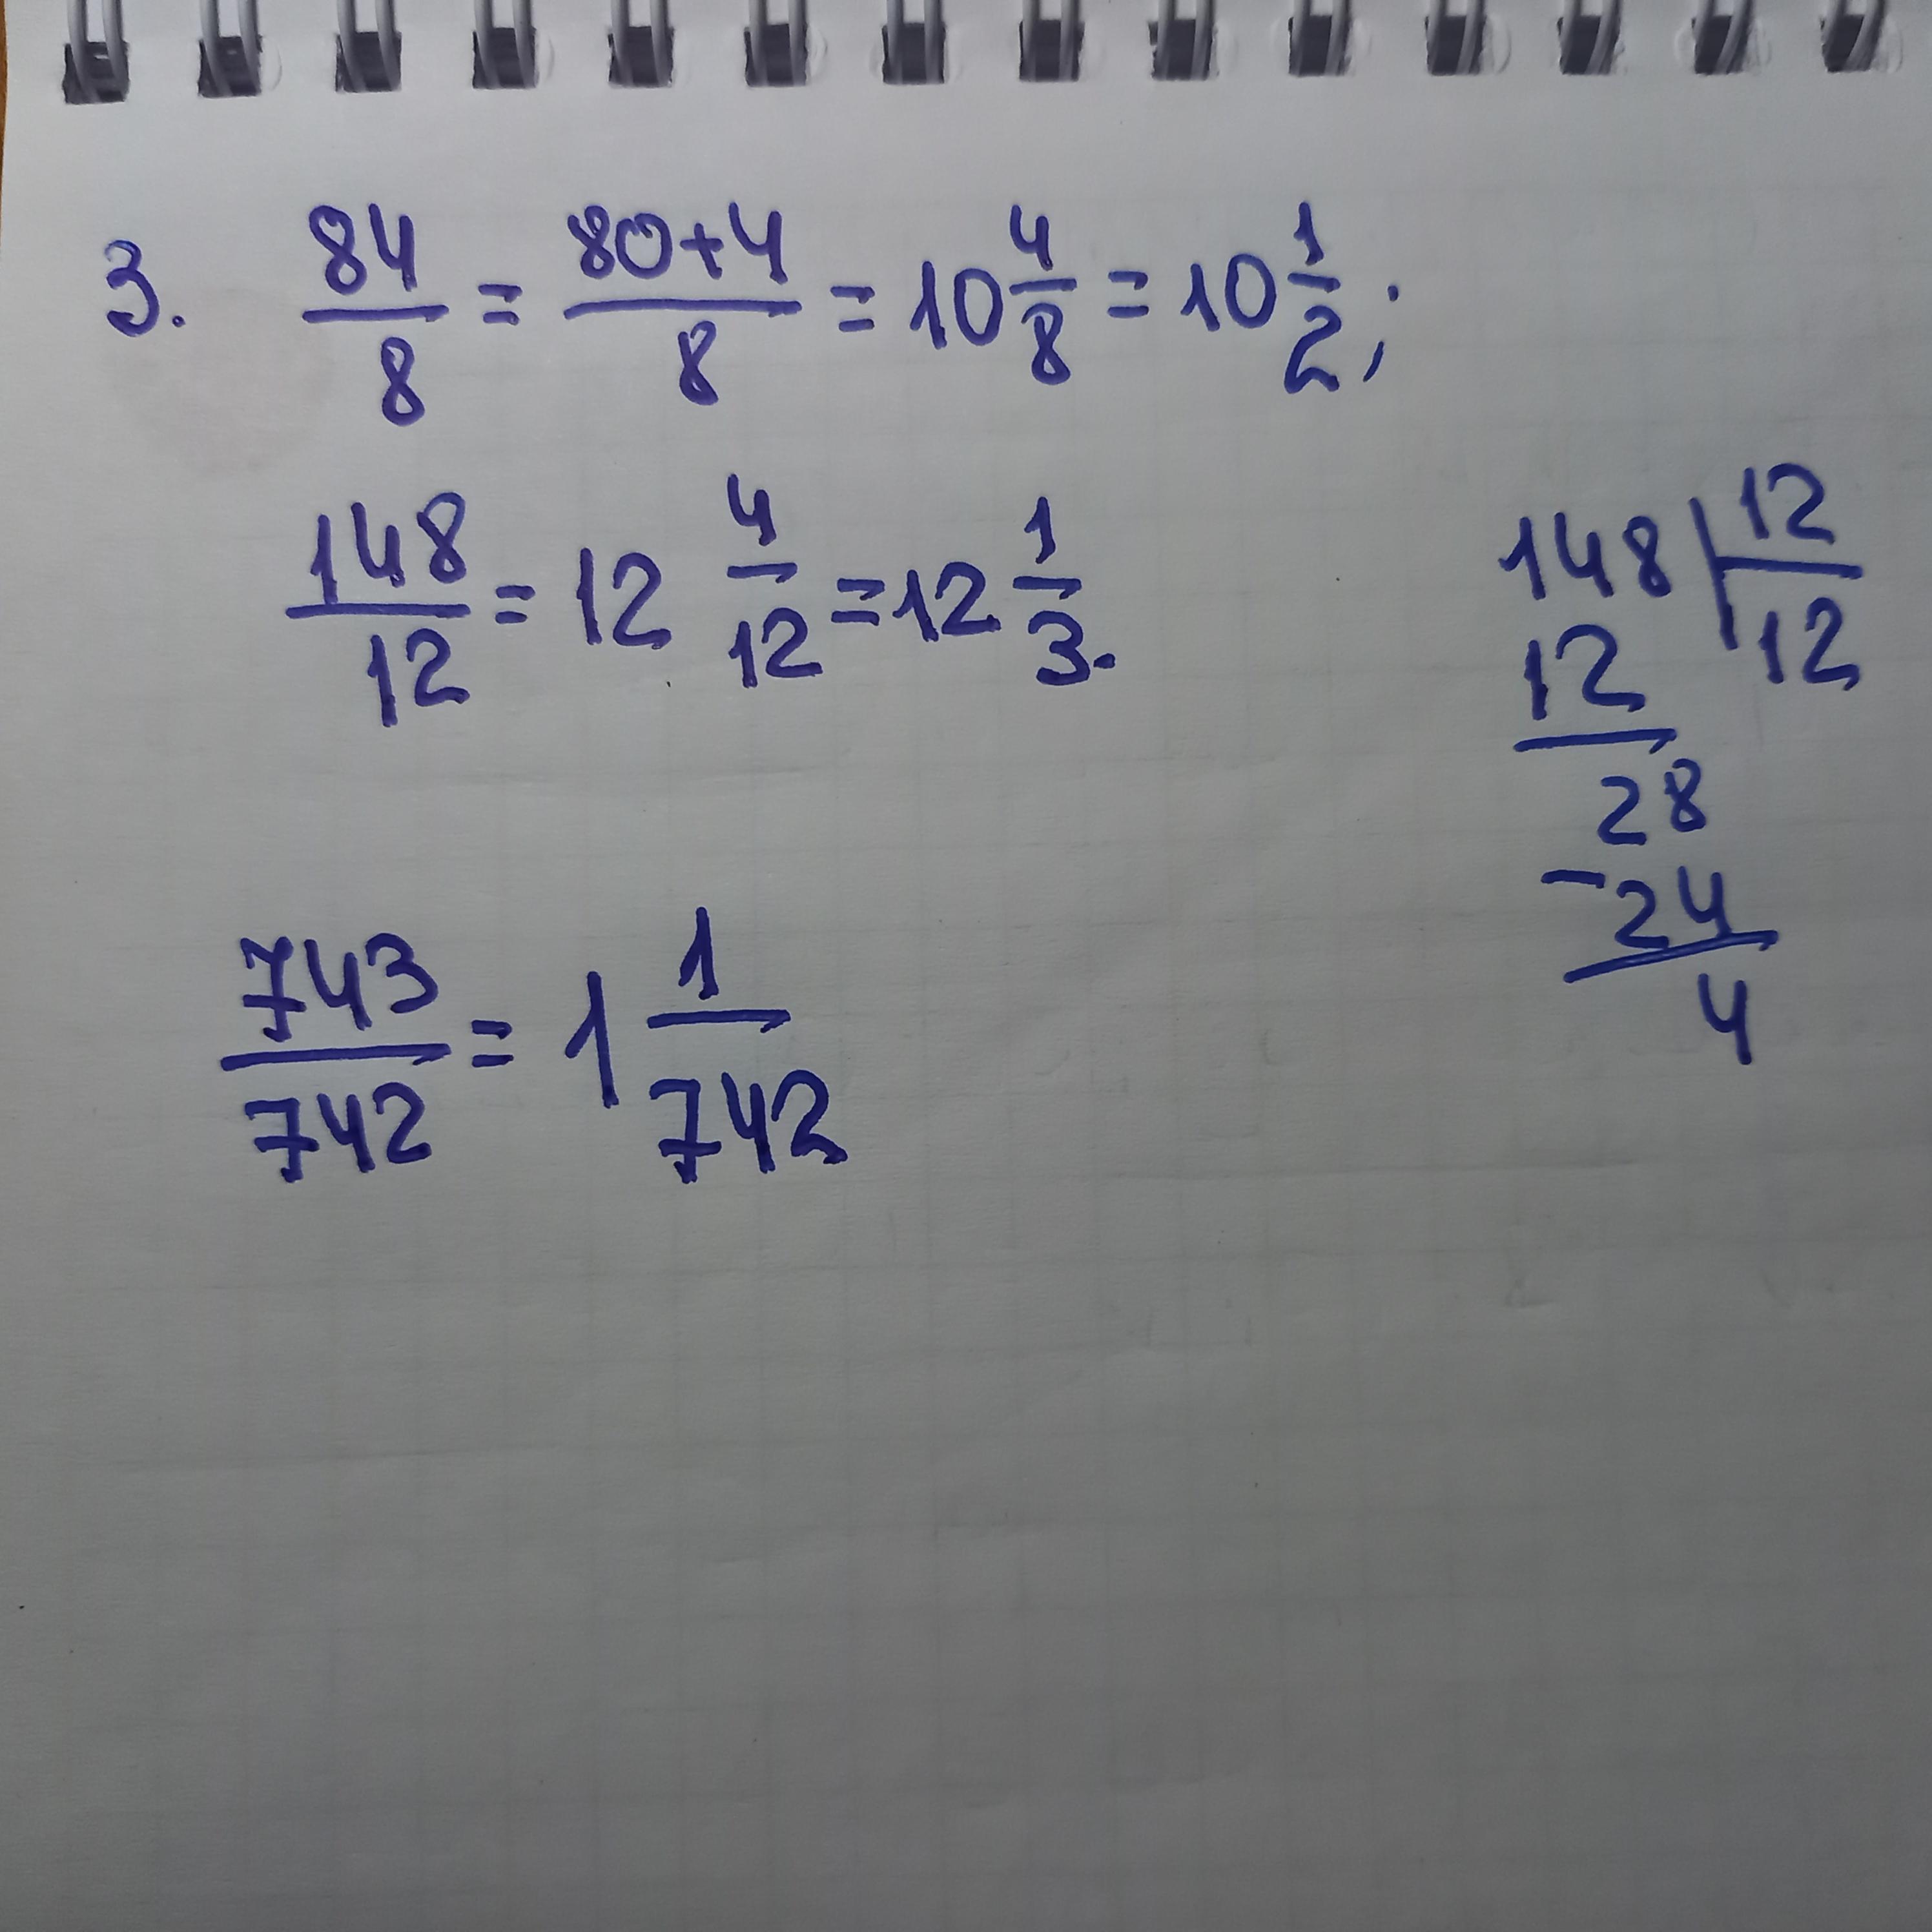 3. 84/8 = 80+4/8 = 10 4/8 = 10 1/2;
148/12 = 12 4/12 = 12 1/3.
743/742 = 1 1/742
148 | 12
12 | 12
28
-24
4